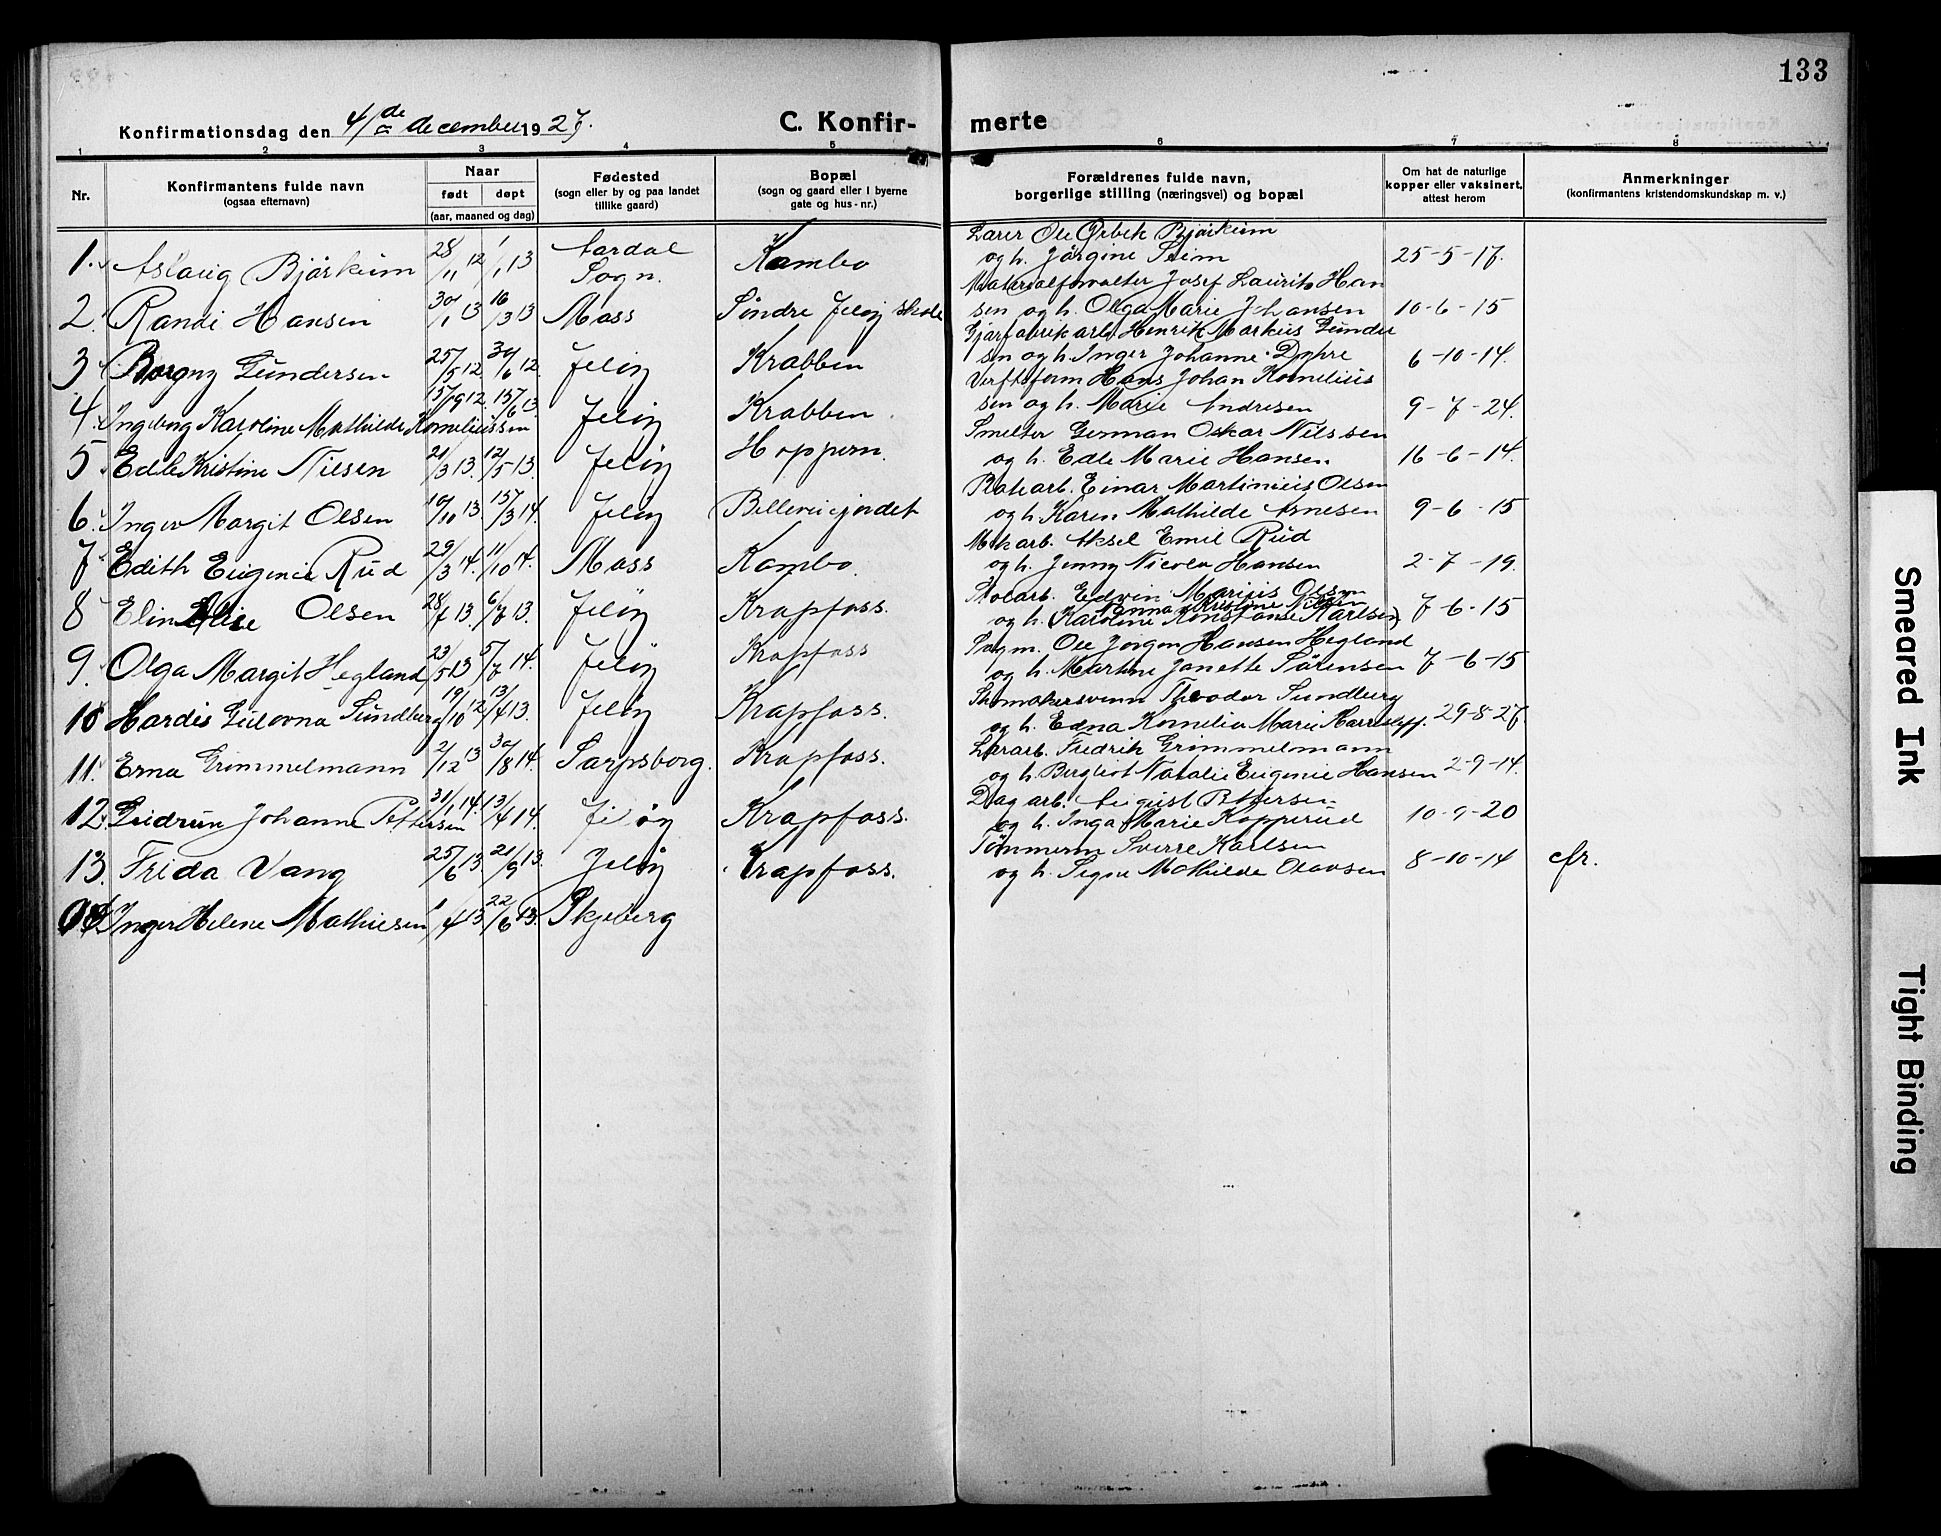 133
Konfirmationsdag den 4/de december 1927.
C. Konfir- merte
1 2 3 4 5 6 7 8
Nr.
Konfirmantens fulde navn
(ogsaa efternavn)
Naar
født døpt
(aar, maaned og dag)
Fødested
(sogn eller by og paa landet
tillike gaard)
Bopæl
(sogn og gaard eller i byerne
gate og hus-nr.)
Forældrenes fulde navn,
borgerlige stilling (næringsvei) og bopæl
Om hat de naturlige
kopper eller vaksinert,
attest herom
Anmerkninger
(konfirmantens kristendomskundskap m. v.)
Lærer Ole Bjørkum
1. Aslaug Bjørkum 28/11 12 1/1 13 Aardal Sogn. Kambo og h. Jørgine Seim 25-5-17.
Materialforvalter Josef Laurits Han
2. Randi Hansen 30/1 13 16/3 13 Moss Søndre Jeløy skole sen og h. Olga Marie Johansen 10-6-15
Henrik Markus Gunder
3 Borgny Gundersen 25/5 12 30/6 12. Jeløy Krabben sen og h. Inger Johanne 6-10-14.
Verftsform Hans Johan Kornelius
4. Ingeborg Karoline Mathilde Korneliussen 15/9 12. 15/6 13. Jeløy Krabben sen og h. Marie Andresen 9-7-24.
Smelter German Oskar Nilssen
5. Edle Kristine Nilsen 21/3 13. 12/5 13. Jeløy Hoppern. og h. Edle Marie Hansen. 16-6-14.
Einar Martinius Olsen
6. Inger Margit Olsen 10/10 13. 15/3 14. Jeløy Bellevuejordet og h. Karen Mathilde Arnesen 9-6-15
Mek arb. Aksel Emil Rud
7 Edith Eugenie Rud 29/3 14. 11/10 14. Moss Kambo. og h. Jenny Nicolea Hansen 2-7-19.
Edvin Marius Olsen
8 Elin Elise Olsen 28/1 13. 6/7 13. Jeløy Krapfoss. Nanna Kristine Nilsen
og h. (Karoline Konstanse Karlsen) 7-6-15
Ole Jørgen Hansen Hegland
9. Olga Margit Hegland 23/5 13 5/7 14. Jeløy Krapfoss og h. Martine Janette Sørensen 7-6-15
Skomakersvenn Theodor Sundberg
10 Hardis Gulovna Sundberg 19/10 12 13/4 13. Jeløy Krapfoss. og h. Edna Kornelia Marie 29-8-27.
Fredrik Grimmelmann
11. Erna Grimmelmann 2/12 13 30/8 14. Sarpsborg. Krapfoss. og h. Bergliot Natalie Eugenie Hansen 2-9-14.
Dag arb. August Pettersen
12. Gudrun Johanne Pettersen 31/1 14. 13/4 14. Jeløy Krapfoss. og h. Inga Marie Kopperud 10-9-20
Tømmerm Sverre Karlsen
13. Frida Vang 25/6 13. 21/9 13. Jeløy Krapfoss. og h. Signe Mathilde Olavsen 8-10-14 cfr.
14 Inger Helene Mathiesen 1/4 13 22/6 13. Skjeberg
Smeared Ink
Tight Binding